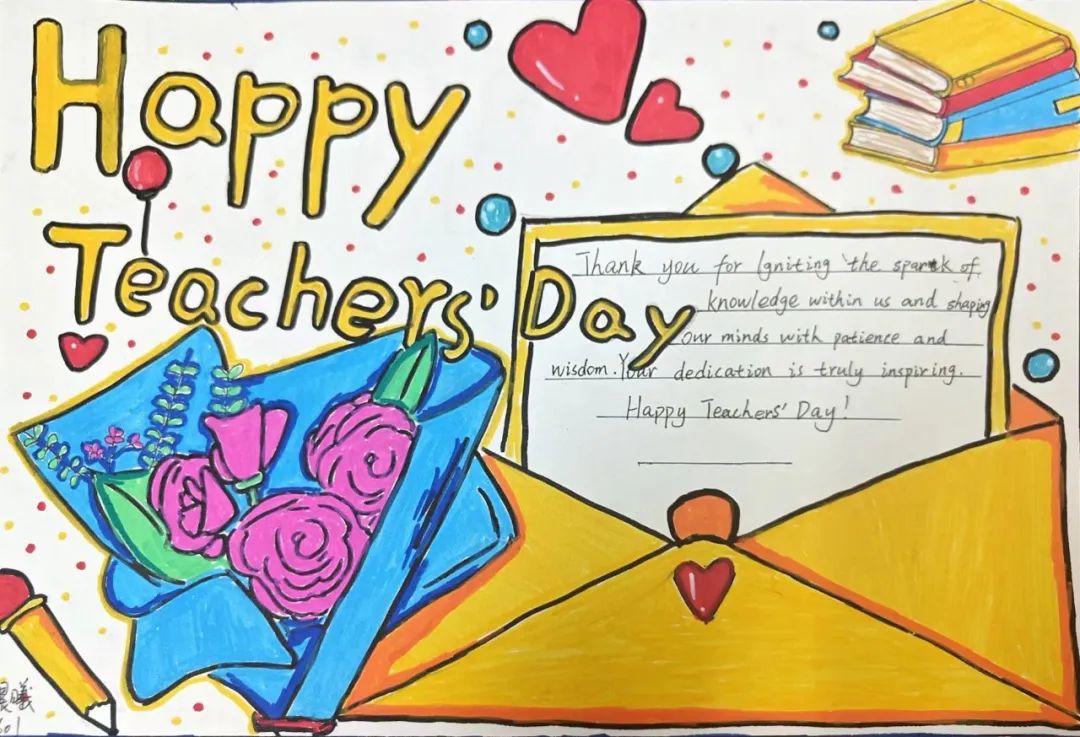 Happy
Teachers' Day
Thank you for Igniting the spark of
knowledge within us and shaping
our minds with patience and
wisdom. Your dedication is truly inspiring.
Happy Teachers' Day!
晨曦
601